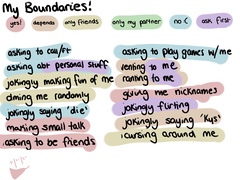 My Boundaries!
yes! depends only friends only my partner no :( ask first
asking to call/ft
asking abt personal stuff
jokingly making fun of me
dming me randomly
jokingly saying 'die'
making small talk
asking to be friends
asking to play games w/ me
venting to me
ranting to me
giving me nicknames
jokingly flirting
jokingly saying 'kys'
cursing around me